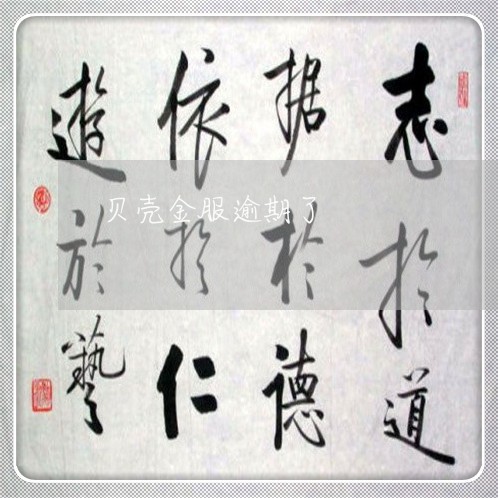 志於道
据於德
依於仁
遊於藝
贝壳金服逾期了